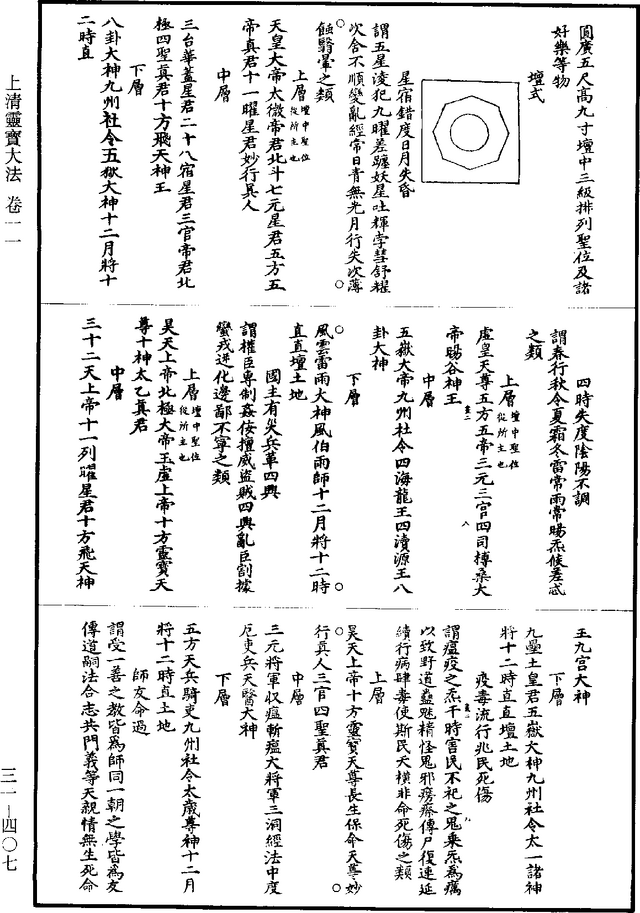 上清靈寶大法　卷一一
三一—四〇七
圓廣五尺高九寸壇中三級排列聖位及諸
好樂等物
壇式
星宿錯度日月失昏
謂五星淩犯九曜差躔妖星吐輝孛彗舒耀
次合不順變亂經常日青無光月行失次薄
蝕翳暈之類
上層壇中聖位從所主也
天皇大帝太微帝君北斗七元星君五方五
帝真君十一曜星君妙行真人
中層
三台華蓋星君二十八宿星君三官帝君北
極四聖真君十方飛天神王
下層
八卦大神九州社令五嶽大神十二月將十
二時直
四時失度陰陽不調
謂春行秋令夏霜冬雷常雨常暘炁候差忒
之類
上層壇中聖位從所主也
虛皇天尊五方五帝三元三官四司榑桑大
帝暘谷神王
中層
五嶽大帝九州社令四海龍王四瀆源王八
卦大神
下層
風雲雷雨大神風伯雨師十二月將十二時
直直壇土地
國主有災兵革四興
謂權臣專制姦佞擅威盜賊四興亂臣割據
蠻戎逆化邊鄙不寧之類
上層壇中聖位從所主也
昊天上帝北極大帝玉虛上帝十方靈寶天
尊十神太乙真君
中層
三十二天上帝十一列曜星君十方飛天神
王九宮大神
下層
九壘土皇君五嶽大神九州社令太一諸神
將十二時直直壇土地
疫毒流行兆民死傷
謂瘟疫之炁干時害民不祀之鬼乘炁為癘
以致野道蠱魅精怪鬼邪癆瘵傳尸復連延
續行病肆毒使斯民夭橫非命死傷之類
上層
昊天上帝十方靈寶天尊長生保命天尊妙
行真人三官四聖真君
中層
三元將軍收瘟斬瘟大將軍三洞經法中度
厄吏兵天醫大神
下層
五方天兵騎吏九州社令太歲尊神十二月
將十二時直土地
師友命過
謂受一善之教皆為師同一朝之學皆為友
傳道嗣法合志共門義等天親情無生死命